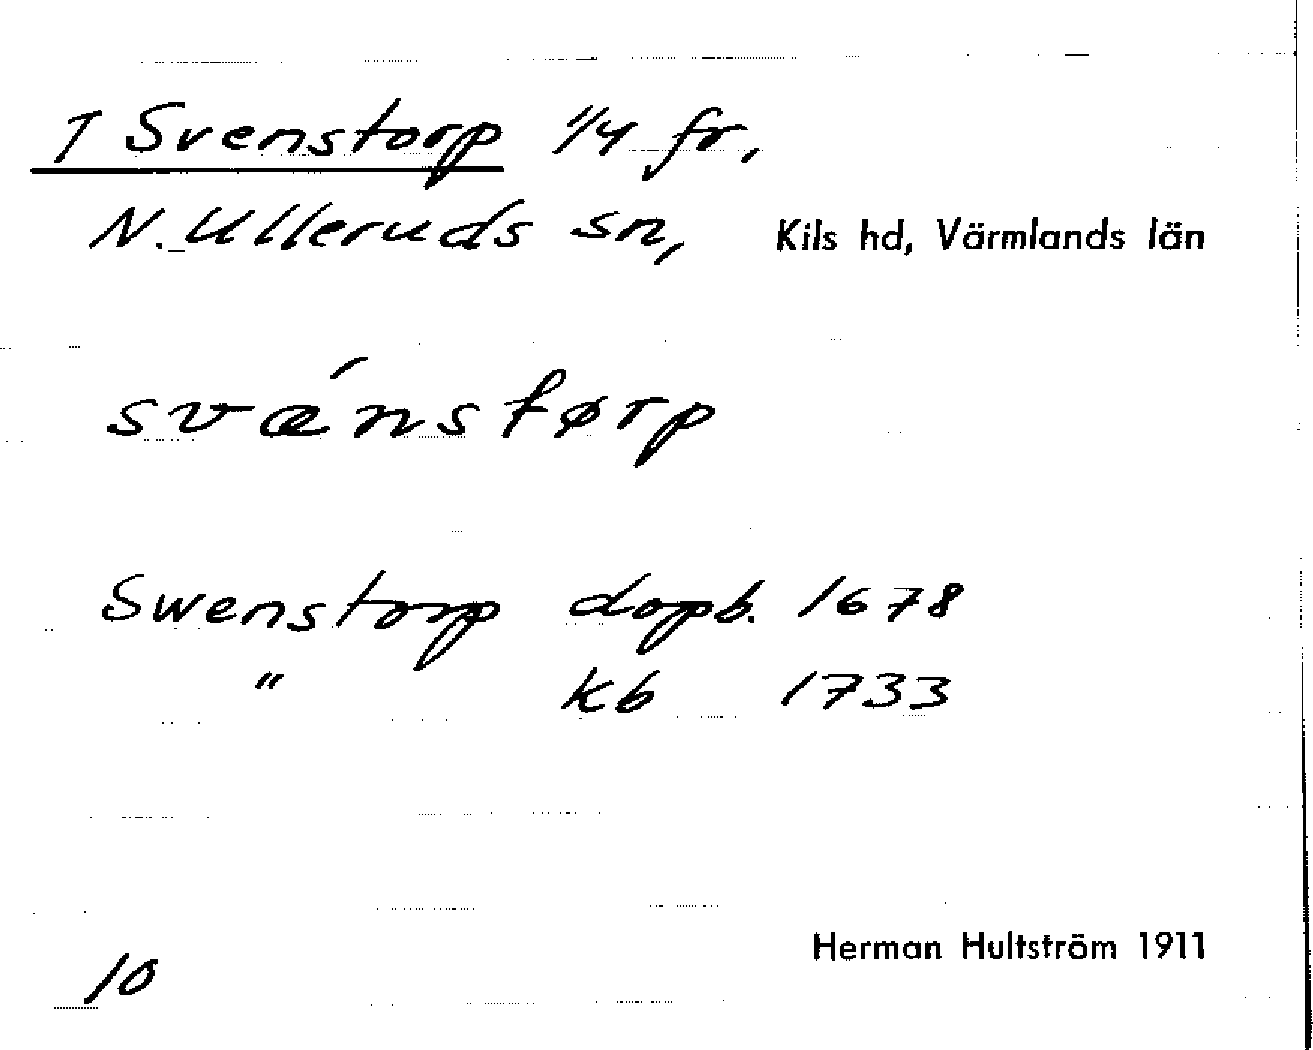 1 Svenstorp 1/4 fr,
N. Ulleruds sn, Kils hd, Värmlands län
svǽnstørp
Swenstorp dopb. 1678
" kb 1733
Herman Hultström 1911
10